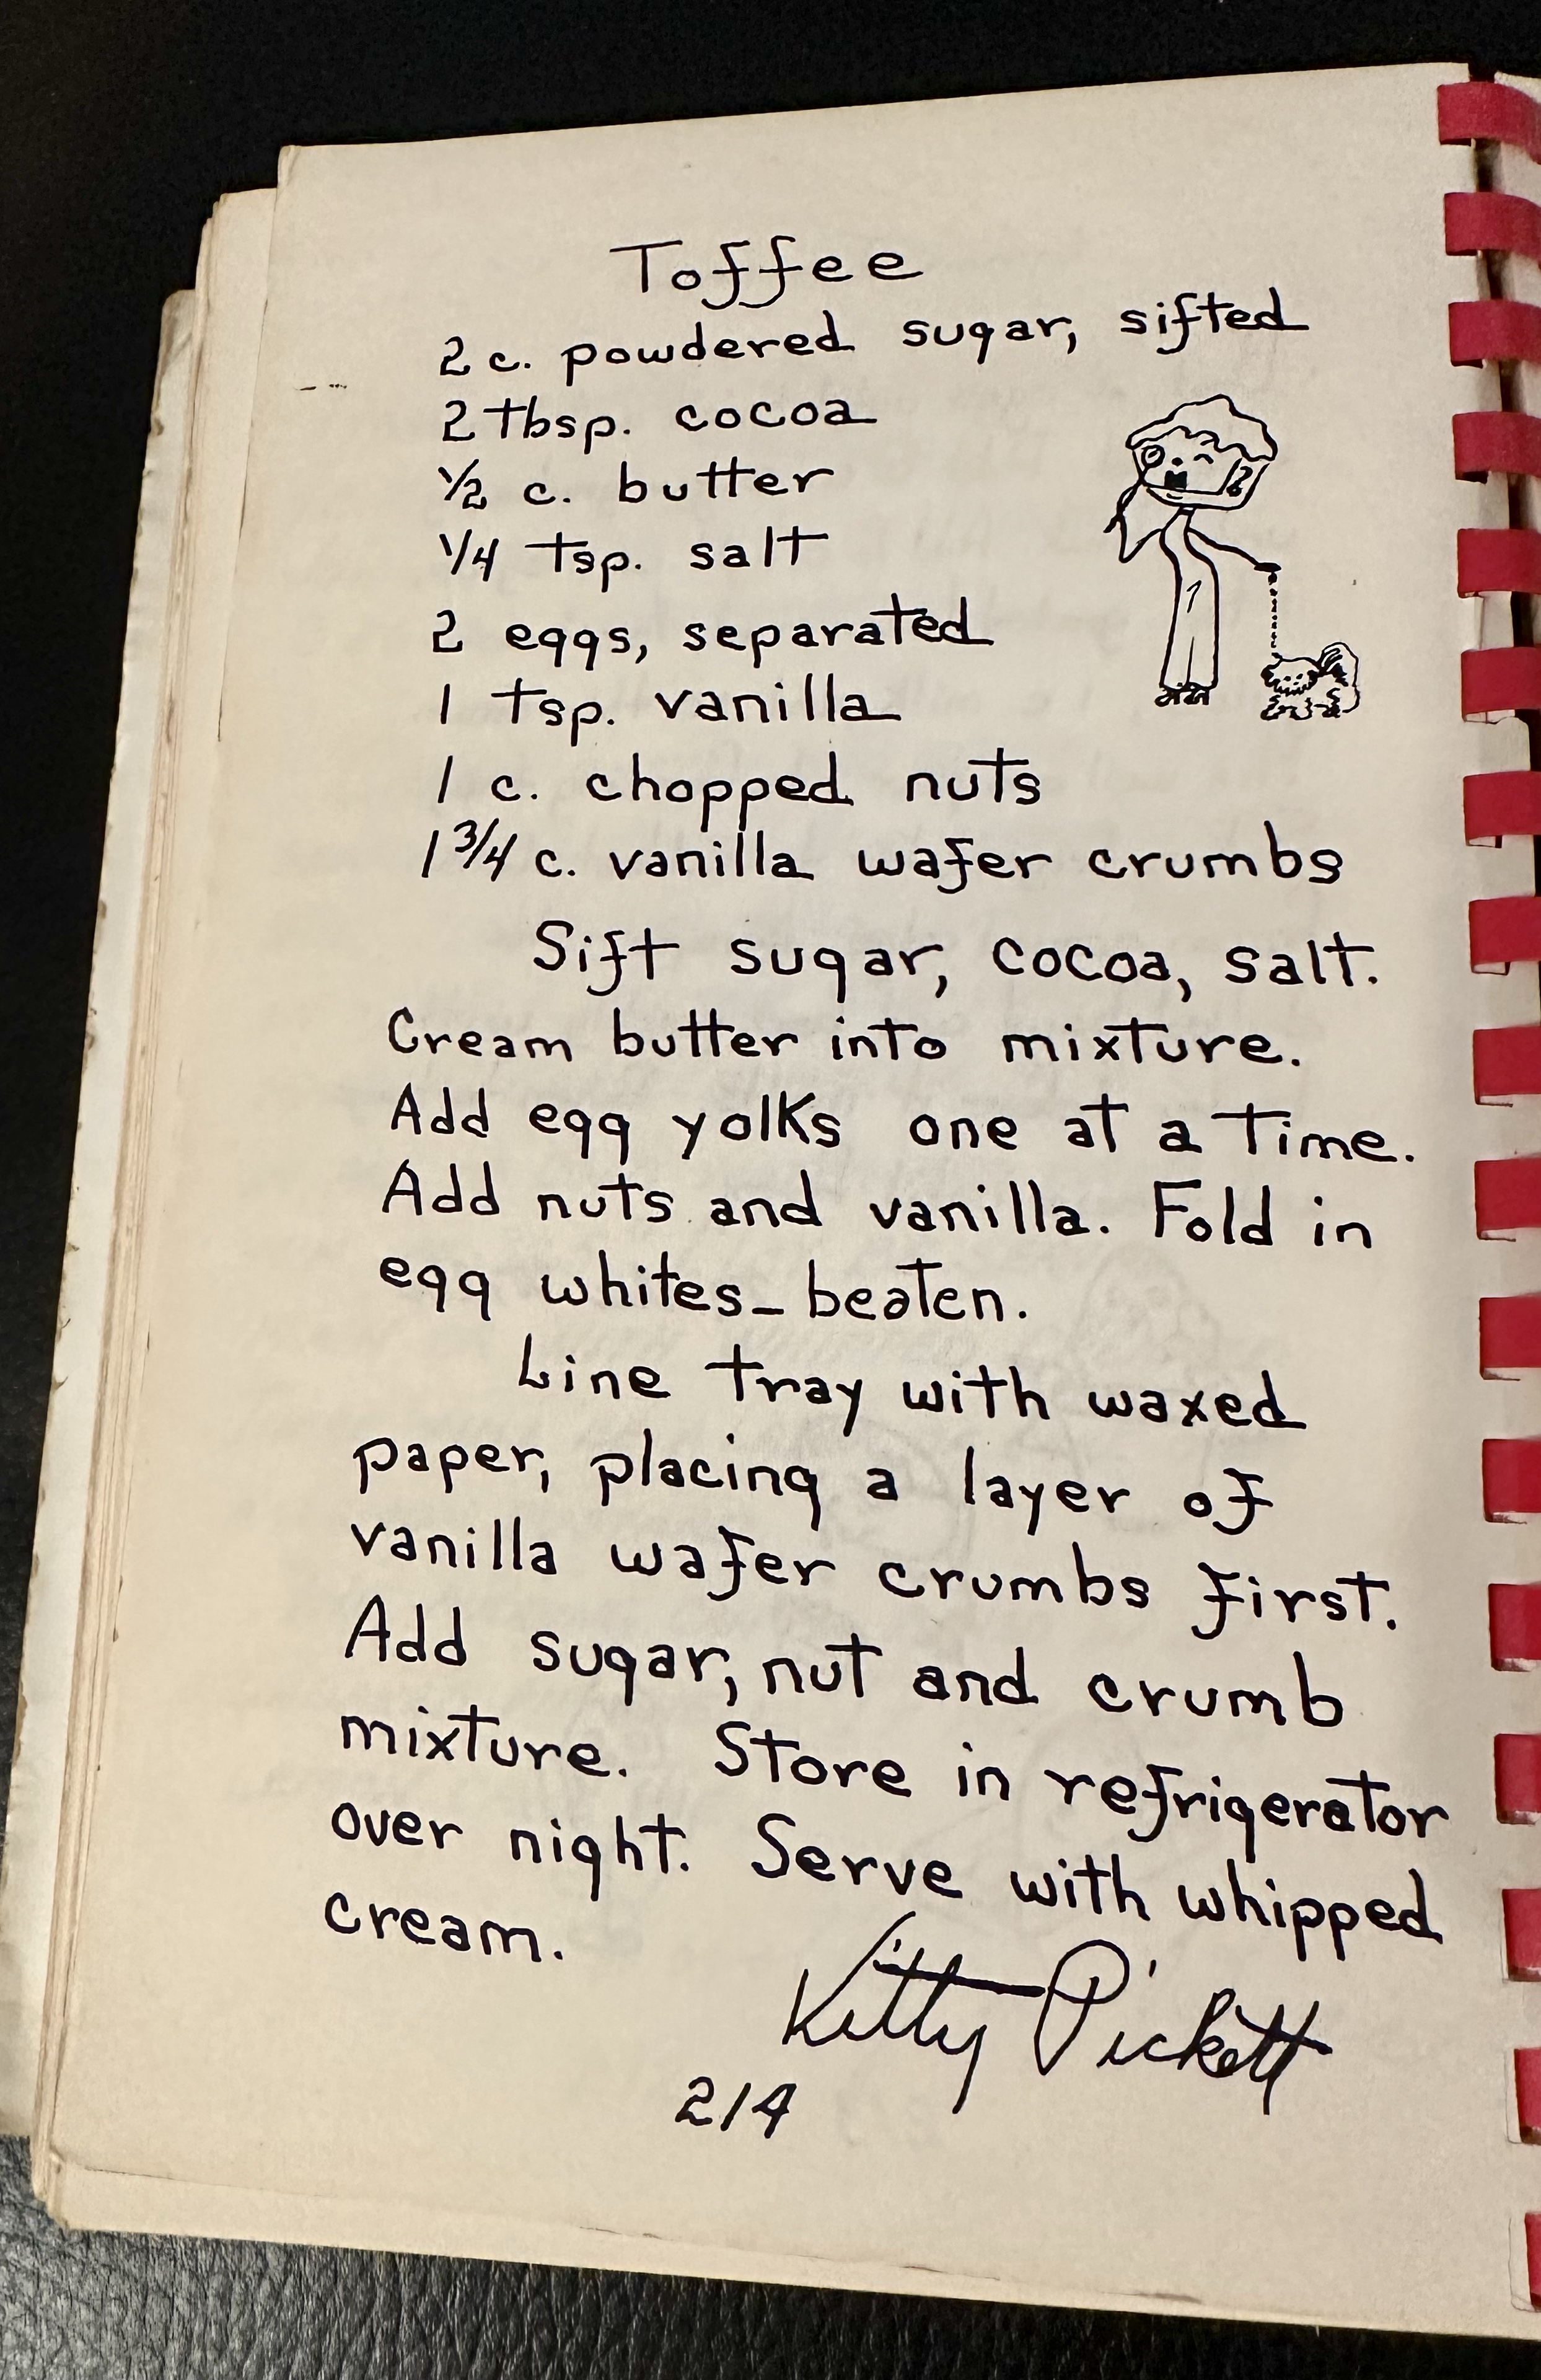 Toffee
2 c. powdered sugar, sifted
2 tbsp. cocoa
1/2 c. butter
1/4 tsp. salt
2 eggs, separated
1 tsp. vanilla
1 c. chopped nuts
1 3/4 c. vanilla wafer crumbs
Sift sugar, cocoa, salt.
Cream butter into mixture.
Add egg yolks one at a time.
Add nuts and vanilla. Fold in
egg whites - beaten.
Line tray with waxed
paper, placing a layer of
vanilla wafer crumbs first.
Add sugar, nut and crumb
mixture. Store in refrigerator
over night. Serve with whipped
cream.
Kitty Pickett
214